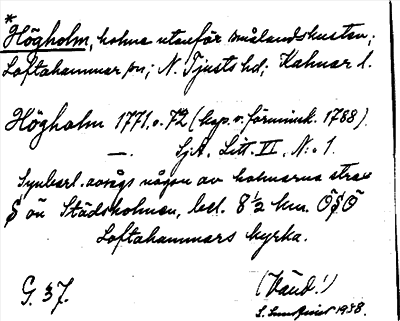 *
Högholm, holme utanför smålandskusten;
Loftahammar sn; N. Tjusts hd; Kalmar l.
Högholm 1771, o. 72 (kop. o. förminsk. 1788).
—. SjA. Litt. VI, N:o 1.
Synbarl. avsågs någon av holmarna strax
S ön Städsholmen, bel. 8 ½ km. ÖSÖ
Loftahammars kyrka.
G. 37. (Vänd!)
1938.